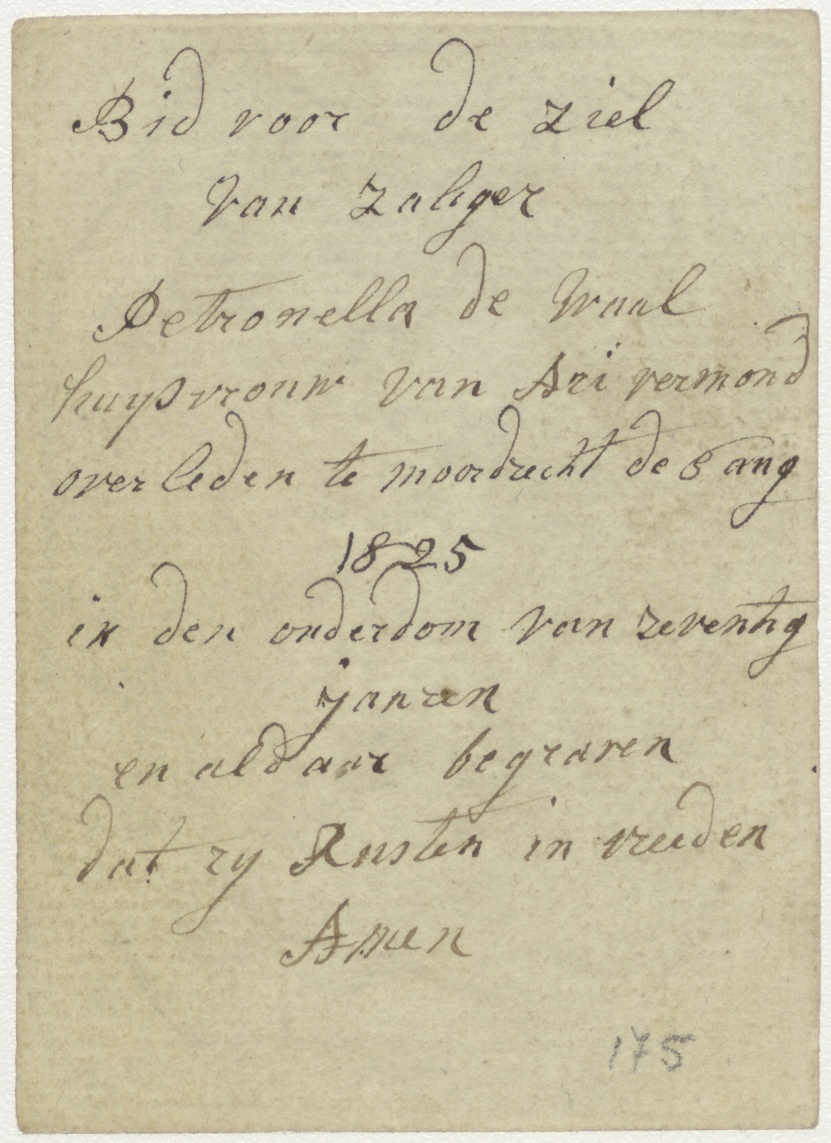 Bid voor de ziel
van zaliger
Petronella de Waal
huysvrouw van Ari vermond
overleden te moordrecht de 6 aug
1825
in den ouderdom van zeventig
jaaren
en aldaar begraven
dat zy Rusten in vreeden
Amen
175